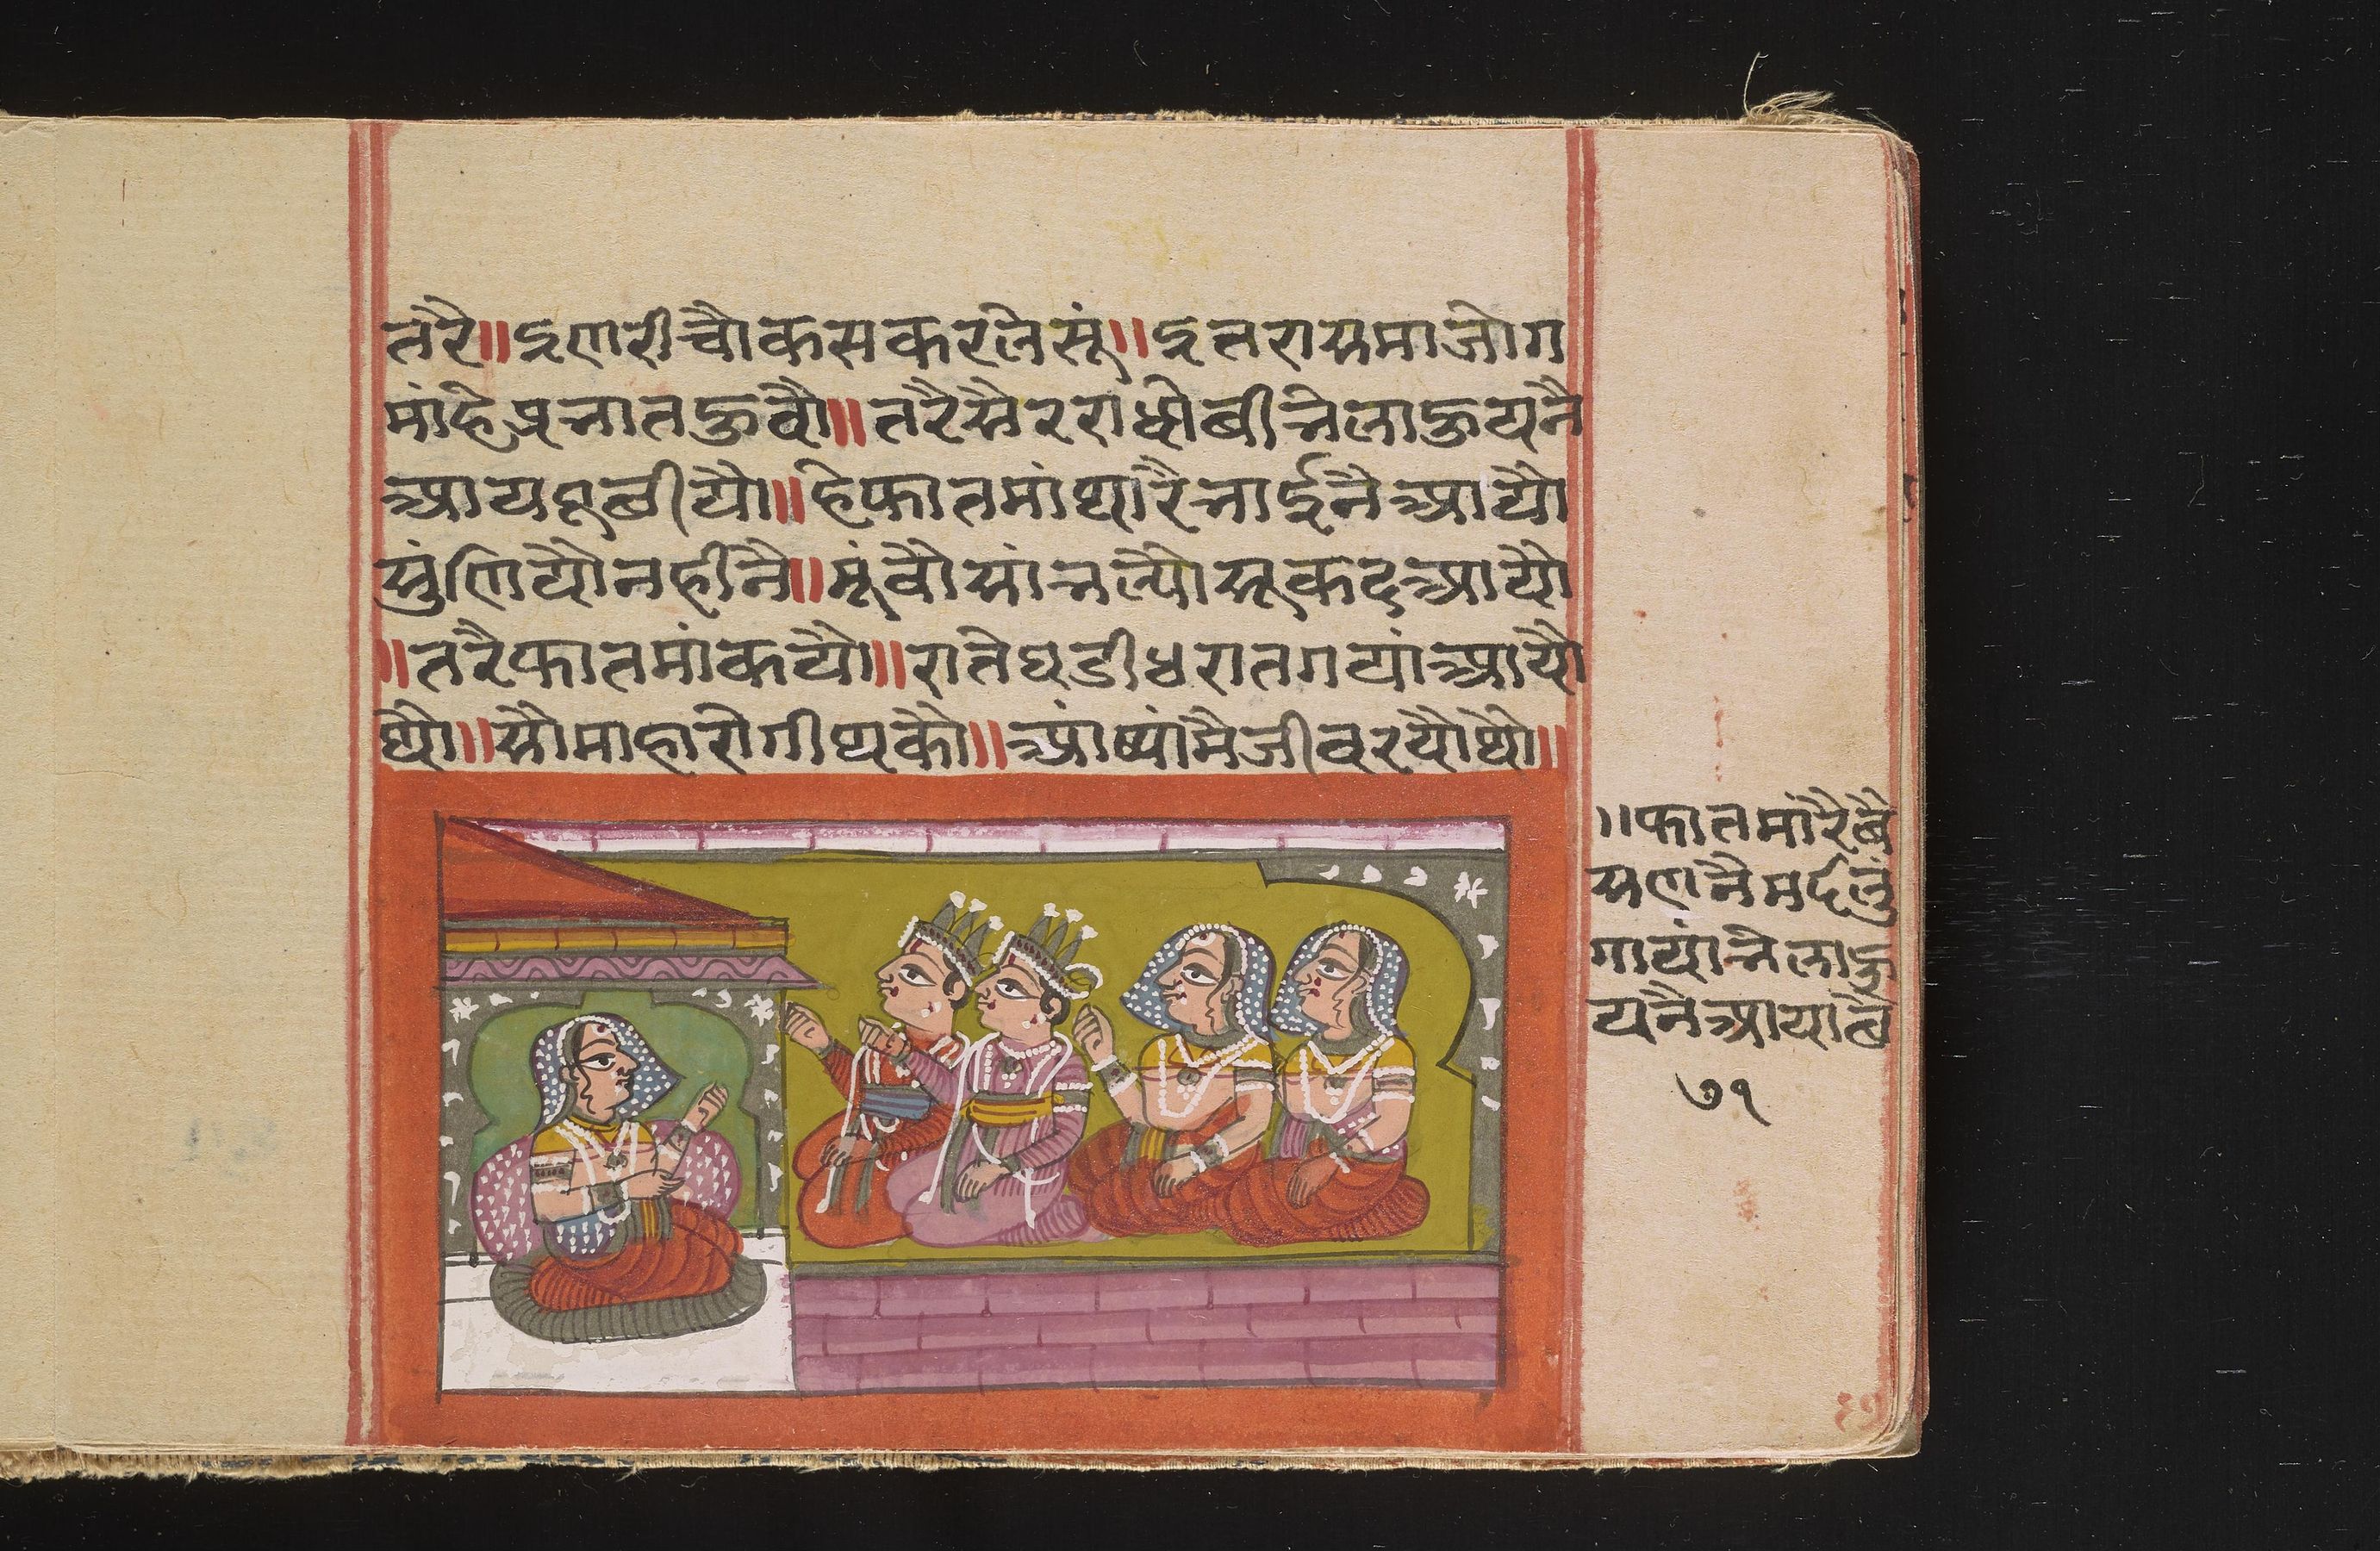 तरै॥इणरीचौकसकरलेसूं॥इतरायमाजोग
मांहेप्रनातऊवौ॥तरैसैररांधोबीनेलाऊयनै
आयऊबीयौ॥हेफातमांथारैनाईनैआयौ
सुंणियौनहीनै॥सूंवौयांनल्यौसूकदआयौ
॥तरैफातमांकयौ॥रातेघडीधरातगयांआयौ
थौ॥सौमाहारोगीथकौ॥आंष्यांमैजीवरयौथौ॥
॥फातमांरैबै
सणनैमर्दलु
गायांनेलाऊ
यनैआयाबै
७१
६७